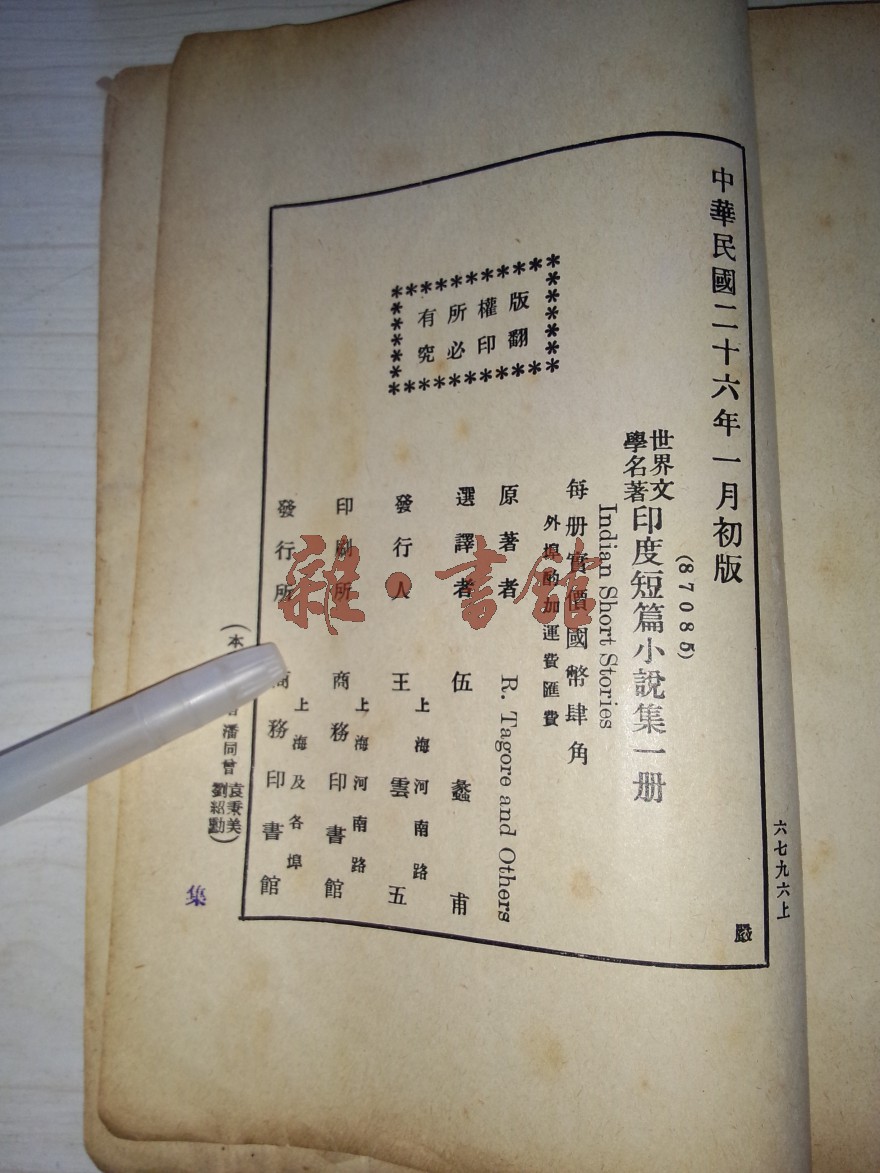 中華民國二十六年一月初版
六七九六上
(87085)
世界文學名著
印度短篇小說集一册
Indian Short Stories
每册實價國幣肆角
外埠酌加運費匯費
原著者 R. Tagore and Others
選譯者 伍蠡甫
發行人 王雲五
上海河南路
印刷所 商務印書館
上海河南路
發行所 商務印書館
上海及各埠
版權所有
翻印必究
(本
潘同曾
袁秉美
劉紹勳)
嚴
集
雜·書館